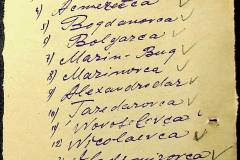 4) Acmezetca ✓
5) Bogdanovca ✓
6) Bolgarca ✓
7) Marin-Bug ✓
8) Marinovca ✓
9) Alexandrodar ✓
10) Taredarovca ✓
11) Novoselovca ✓
12) Nicolaevca ✓